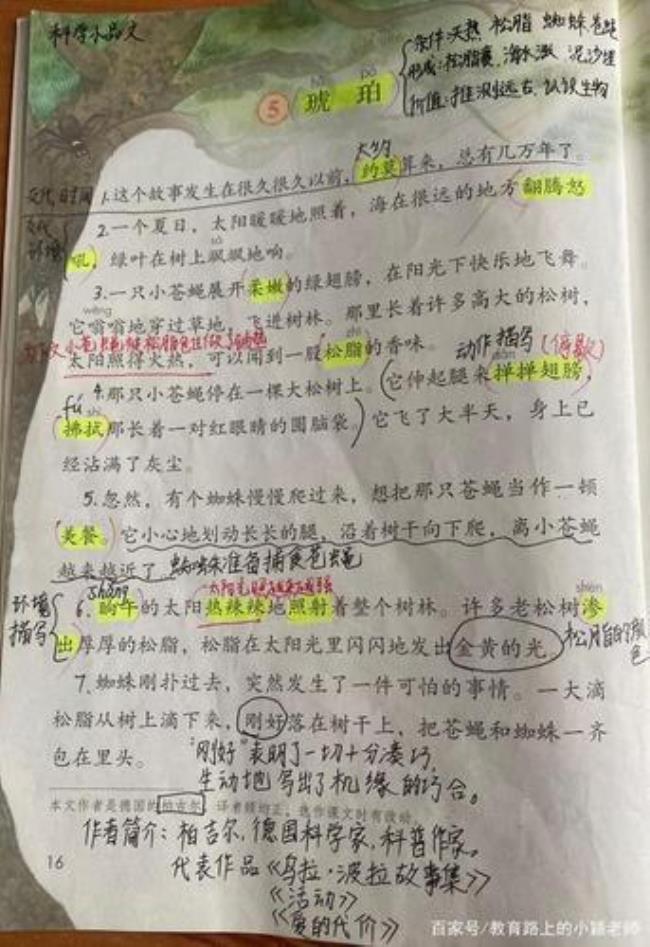 科学小品文
条件:天热 松脂 蜘蛛 苍蝇
形成:松脂裹、海水淹 泥沙埋
价值:推测远古、认识生物
hǔ pò
5 琥 珀
大约
交代时间
1.这个故事发生在很久很久以前,约莫算来,总有几万年了。
2.一个夏日,太阳暖暖地照着,海在很远的地方翻腾怒
交代
环境
sà
吼,绿叶在树上飒飒地响。
3.一只小苍蝇展开柔嫩的绿翅膀,在阳光下快乐地飞舞。
wēng
它嗡嗡地穿过草地,飞进树林。那里长着许多高大的松树,
zhī
太阳照得火热,可以闻到一股松脂的香味。
动作描写
dǎn
4.那只小苍蝇停在一棵大松树上。它伸起腿来掸掸翅膀,
fú shì
拂拭那长着一对红眼睛的圆脑袋。它飞了大半天,身上已
经沾满了灰尘。
5.忽然,有个蜘蛛慢慢爬过来,想把那只苍蝇当作一顿
美餐。它小心地划动长长的腿,沿着树干向下爬,离小苍蝇
越来越近了。蜘蛛准备捕食苍蝇
shǎng
shèn
环境
描写
6.晌午的太阳热辣辣地照射着整个树林。许多老松树渗
出厚厚的松脂,松脂在太阳光里闪闪地发出金黄的光。
松脂的颜
色
7.蜘蛛刚扑过去,突然发生了一件可怕的事情。一大滴
松脂从树上滴下来,刚好落在树干上,把苍蝇和蜘蛛一齐
包在里头。
"刚好"表明了一切十分凑巧,
生动地写出了机缘的巧合。
本文作者是德国的柏吉尔,译者顾均正,选作课文时有改动。
作者简介:柏吉尔,德国科学家,科普作家。
16
代表作品《乌拉·波拉故事集》
《活动》
《爱的代价》
百家号/教育路上的小颖老师